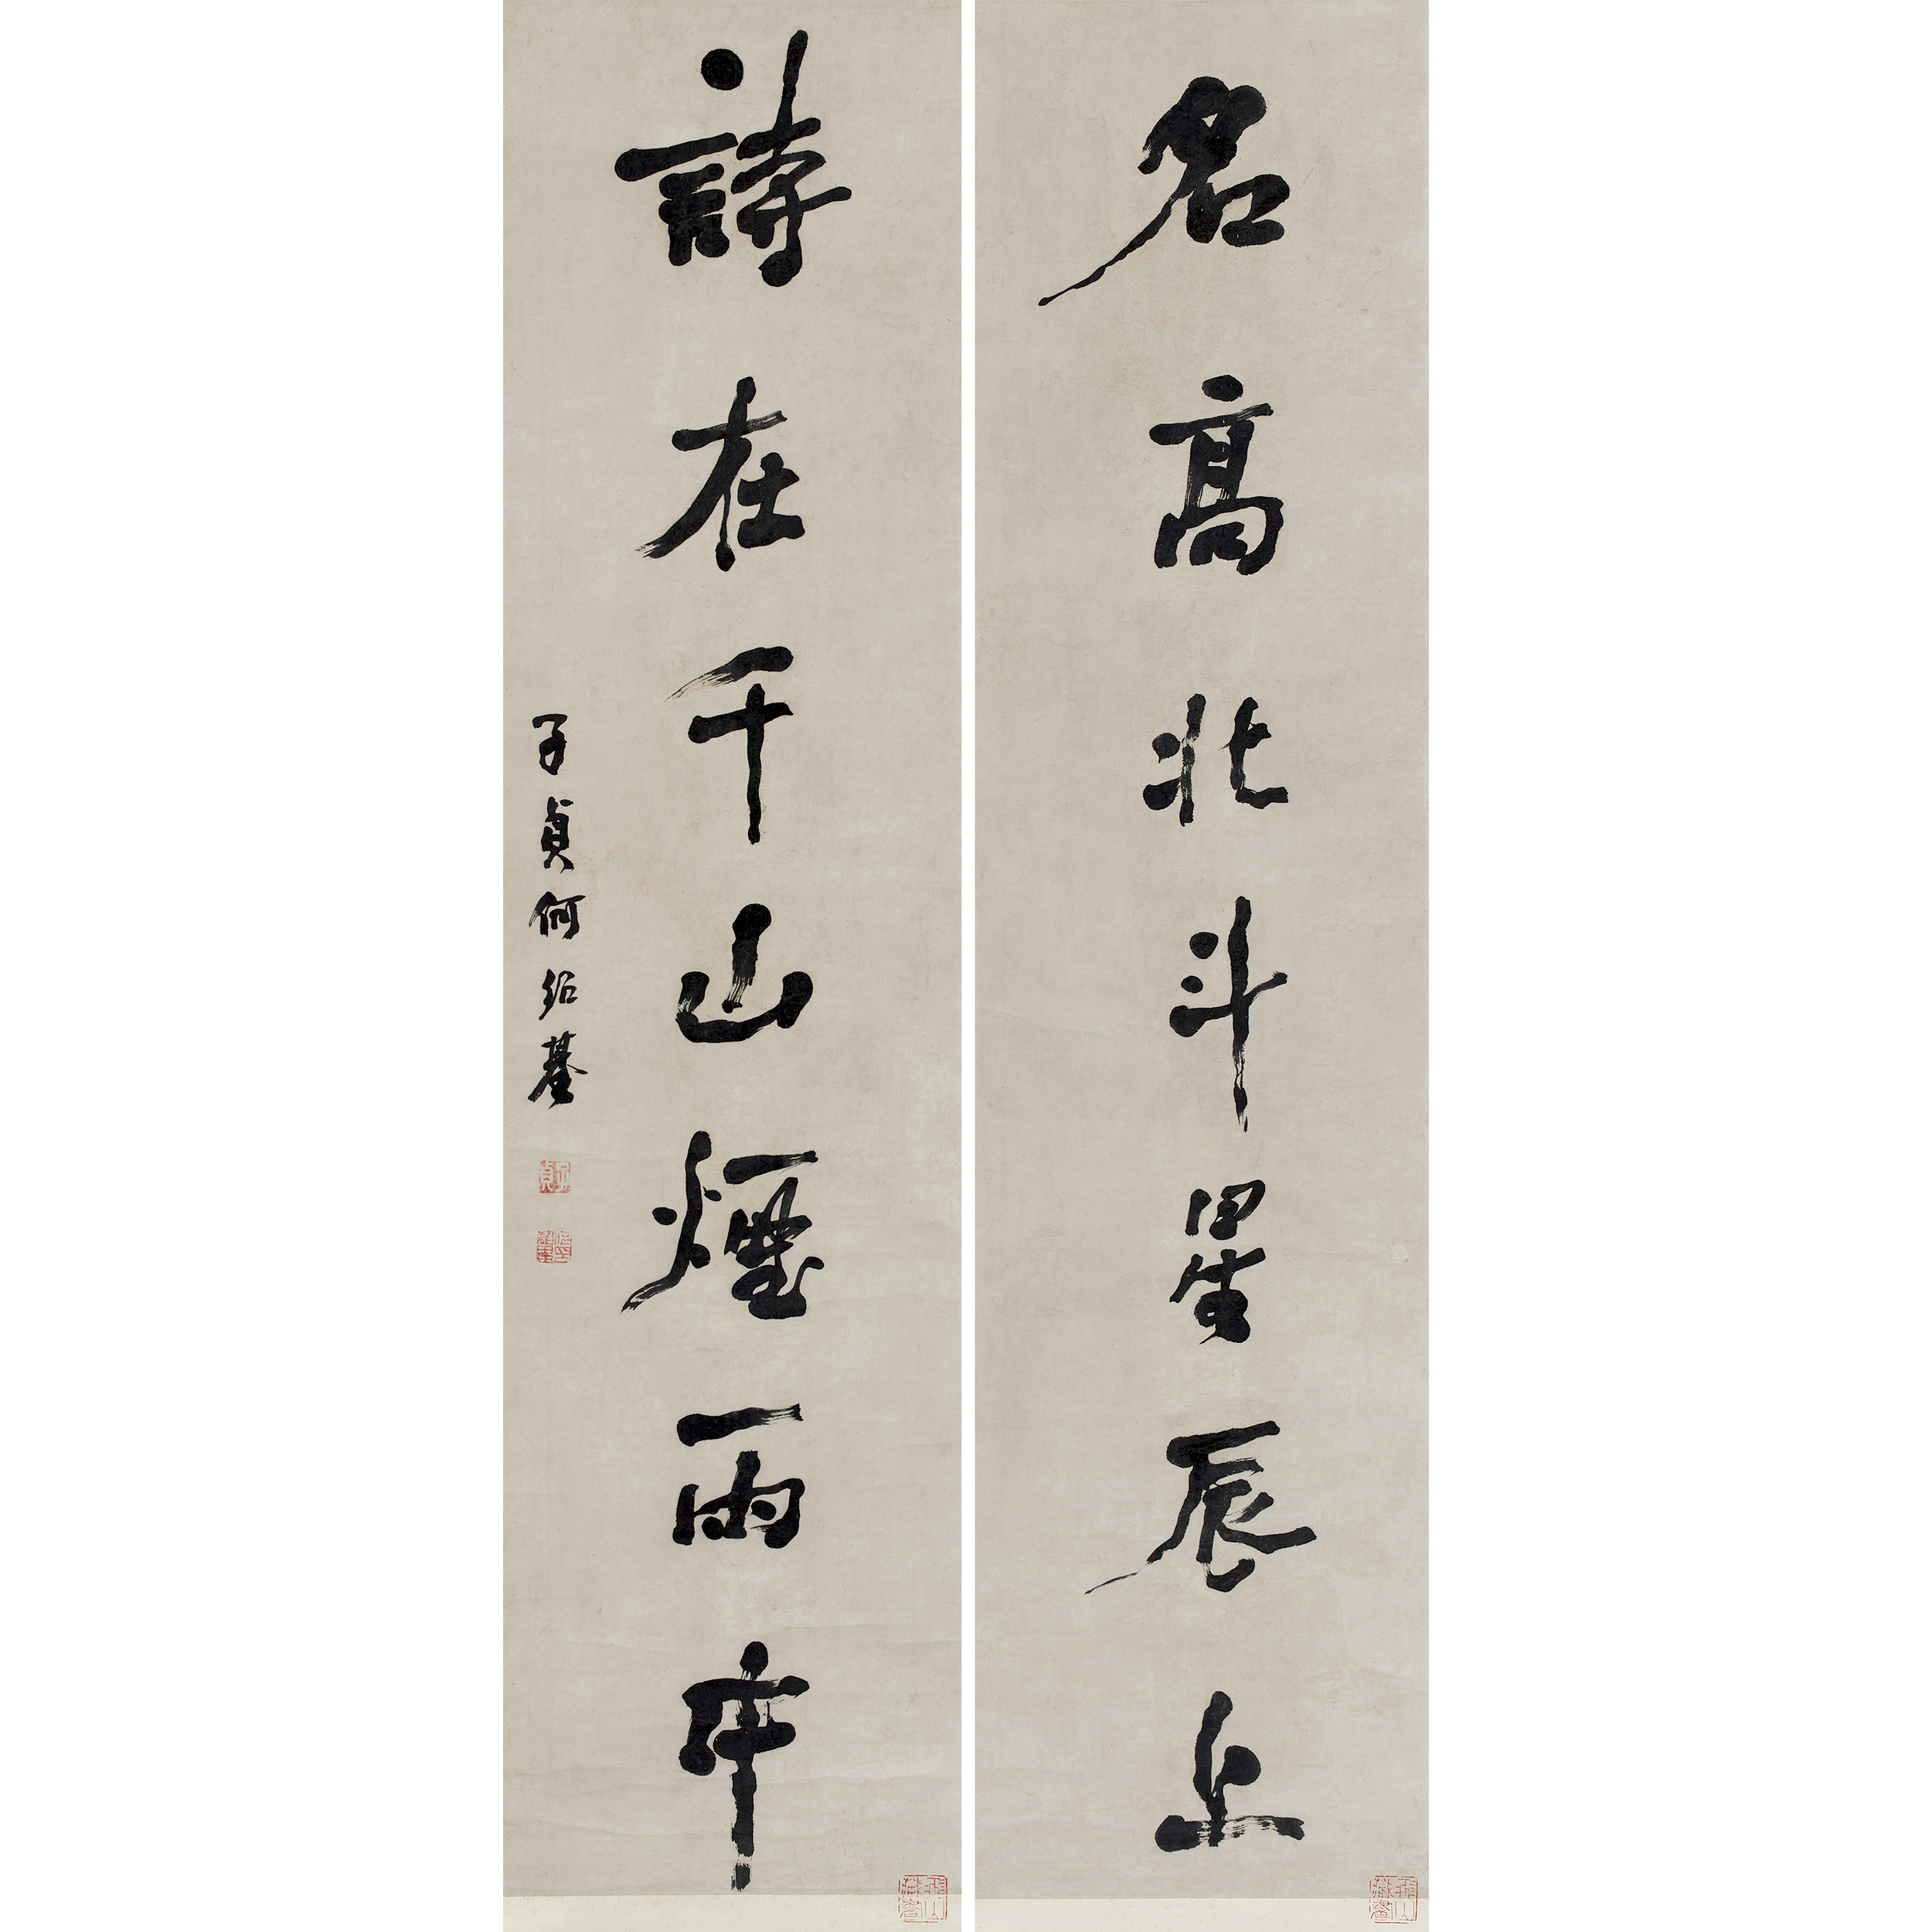 名高北斗星辰上
詩在千山煙雨中
子貞何紹基
子貞